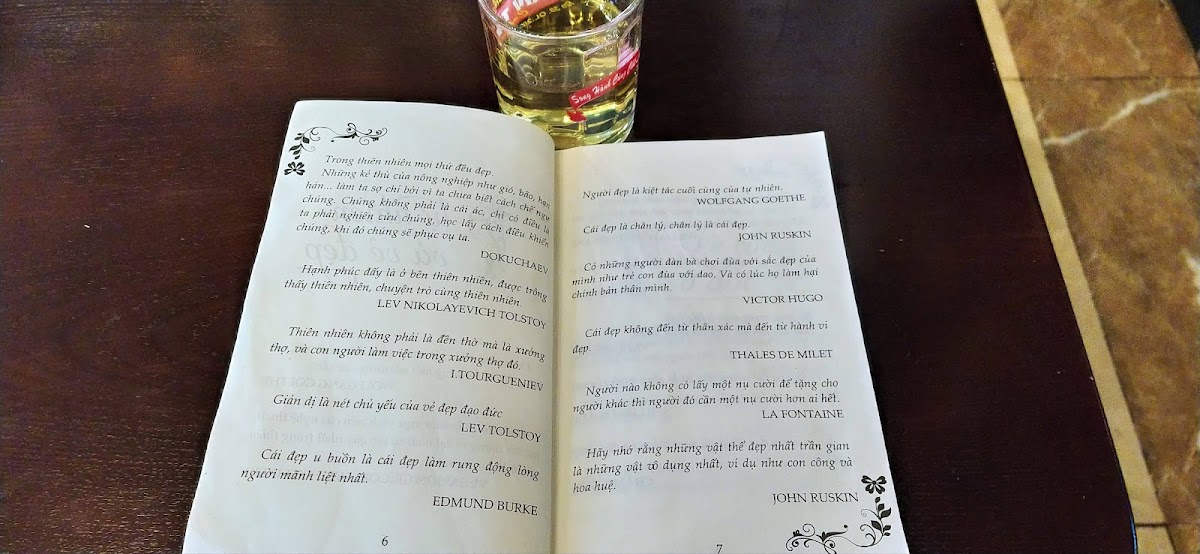 Song Hành Cùng
Trong thiên nhiên mọi thứ đều đẹp.
Những kẻ thù của nông nghiệp như gió, bão, hạn
hán... làm ta sợ chỉ bởi vì ta chưa biết cách chế ngự
chúng. Chúng không phải là cái ác, chỉ có điều là
ta phải nghiên cứu chúng, học lấy cách điều khiển
chúng, khi đó chúng sẽ phục vụ ta.
DOKUCHAEV
Hạnh phúc đấy là ở bên thiên nhiên, được trông
thấy thiên nhiên, chuyện trò cùng thiên nhiên.
LEV NIKOLAYEVICH TOLSTOY
Thiên nhiên không phải là đền thờ mà là xưởng
thợ, và con người làm việc trong xưởng thợ đó.
I.TOURGUENIEV
Giản dị là nét chủ yếu của vẻ đẹp đạo đức
LEV TOLSTOY
Cái đẹp u buồn là cái đẹp làm rung động lòng
người mãnh liệt nhất.
EDMUND BURKE
6
Người đẹp là kiệt tác cuối cùng của tự nhiên.
WOLFGANG GOETHE
Cái đẹp là chân lý, chân lý là cái đẹp.
JOHN RUSKIN
Có những người đàn bà chơi đùa với sắc đẹp của
mình như trẻ con đùa với dao, Và có lúc họ làm hại
chính bản thân mình.
VICTOR HUGO
Cái đẹp không đến từ thân xác mà đến từ hành vi
đẹp.
THALES DE MILET
Người nào không có lấy một nụ cười để tặng cho
người khác thì người đó cần một nụ cười hơn ai hết.
LA FONTAINE
Hãy nhớ rằng những vật thể đẹp nhất trần gian
là những vật vô dụng nhất, ví dụ như con công và
hoa huệ.
JOHN RUSKIN
7